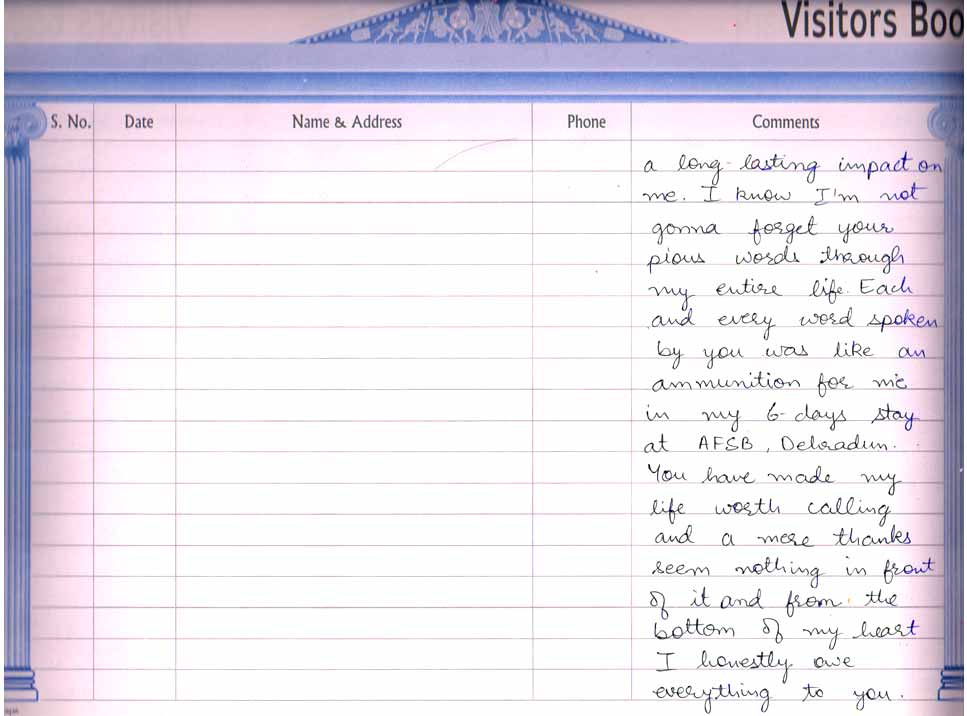 Visitors Boo
S. No. Date Name & Address Phone Comments
a long-lasting impact on
me. I know I'm not
gonna forget your
pious words through
my entire life. Each
and every word spoken
by you was like an
ammunition for me
in my 6-days stay
at AFSB, Dehradun.
You have made my
life worth calling
and a mere thanks
seem nothing in front
of it and from the
bottom of my heart
I honestly owe
everything to you.